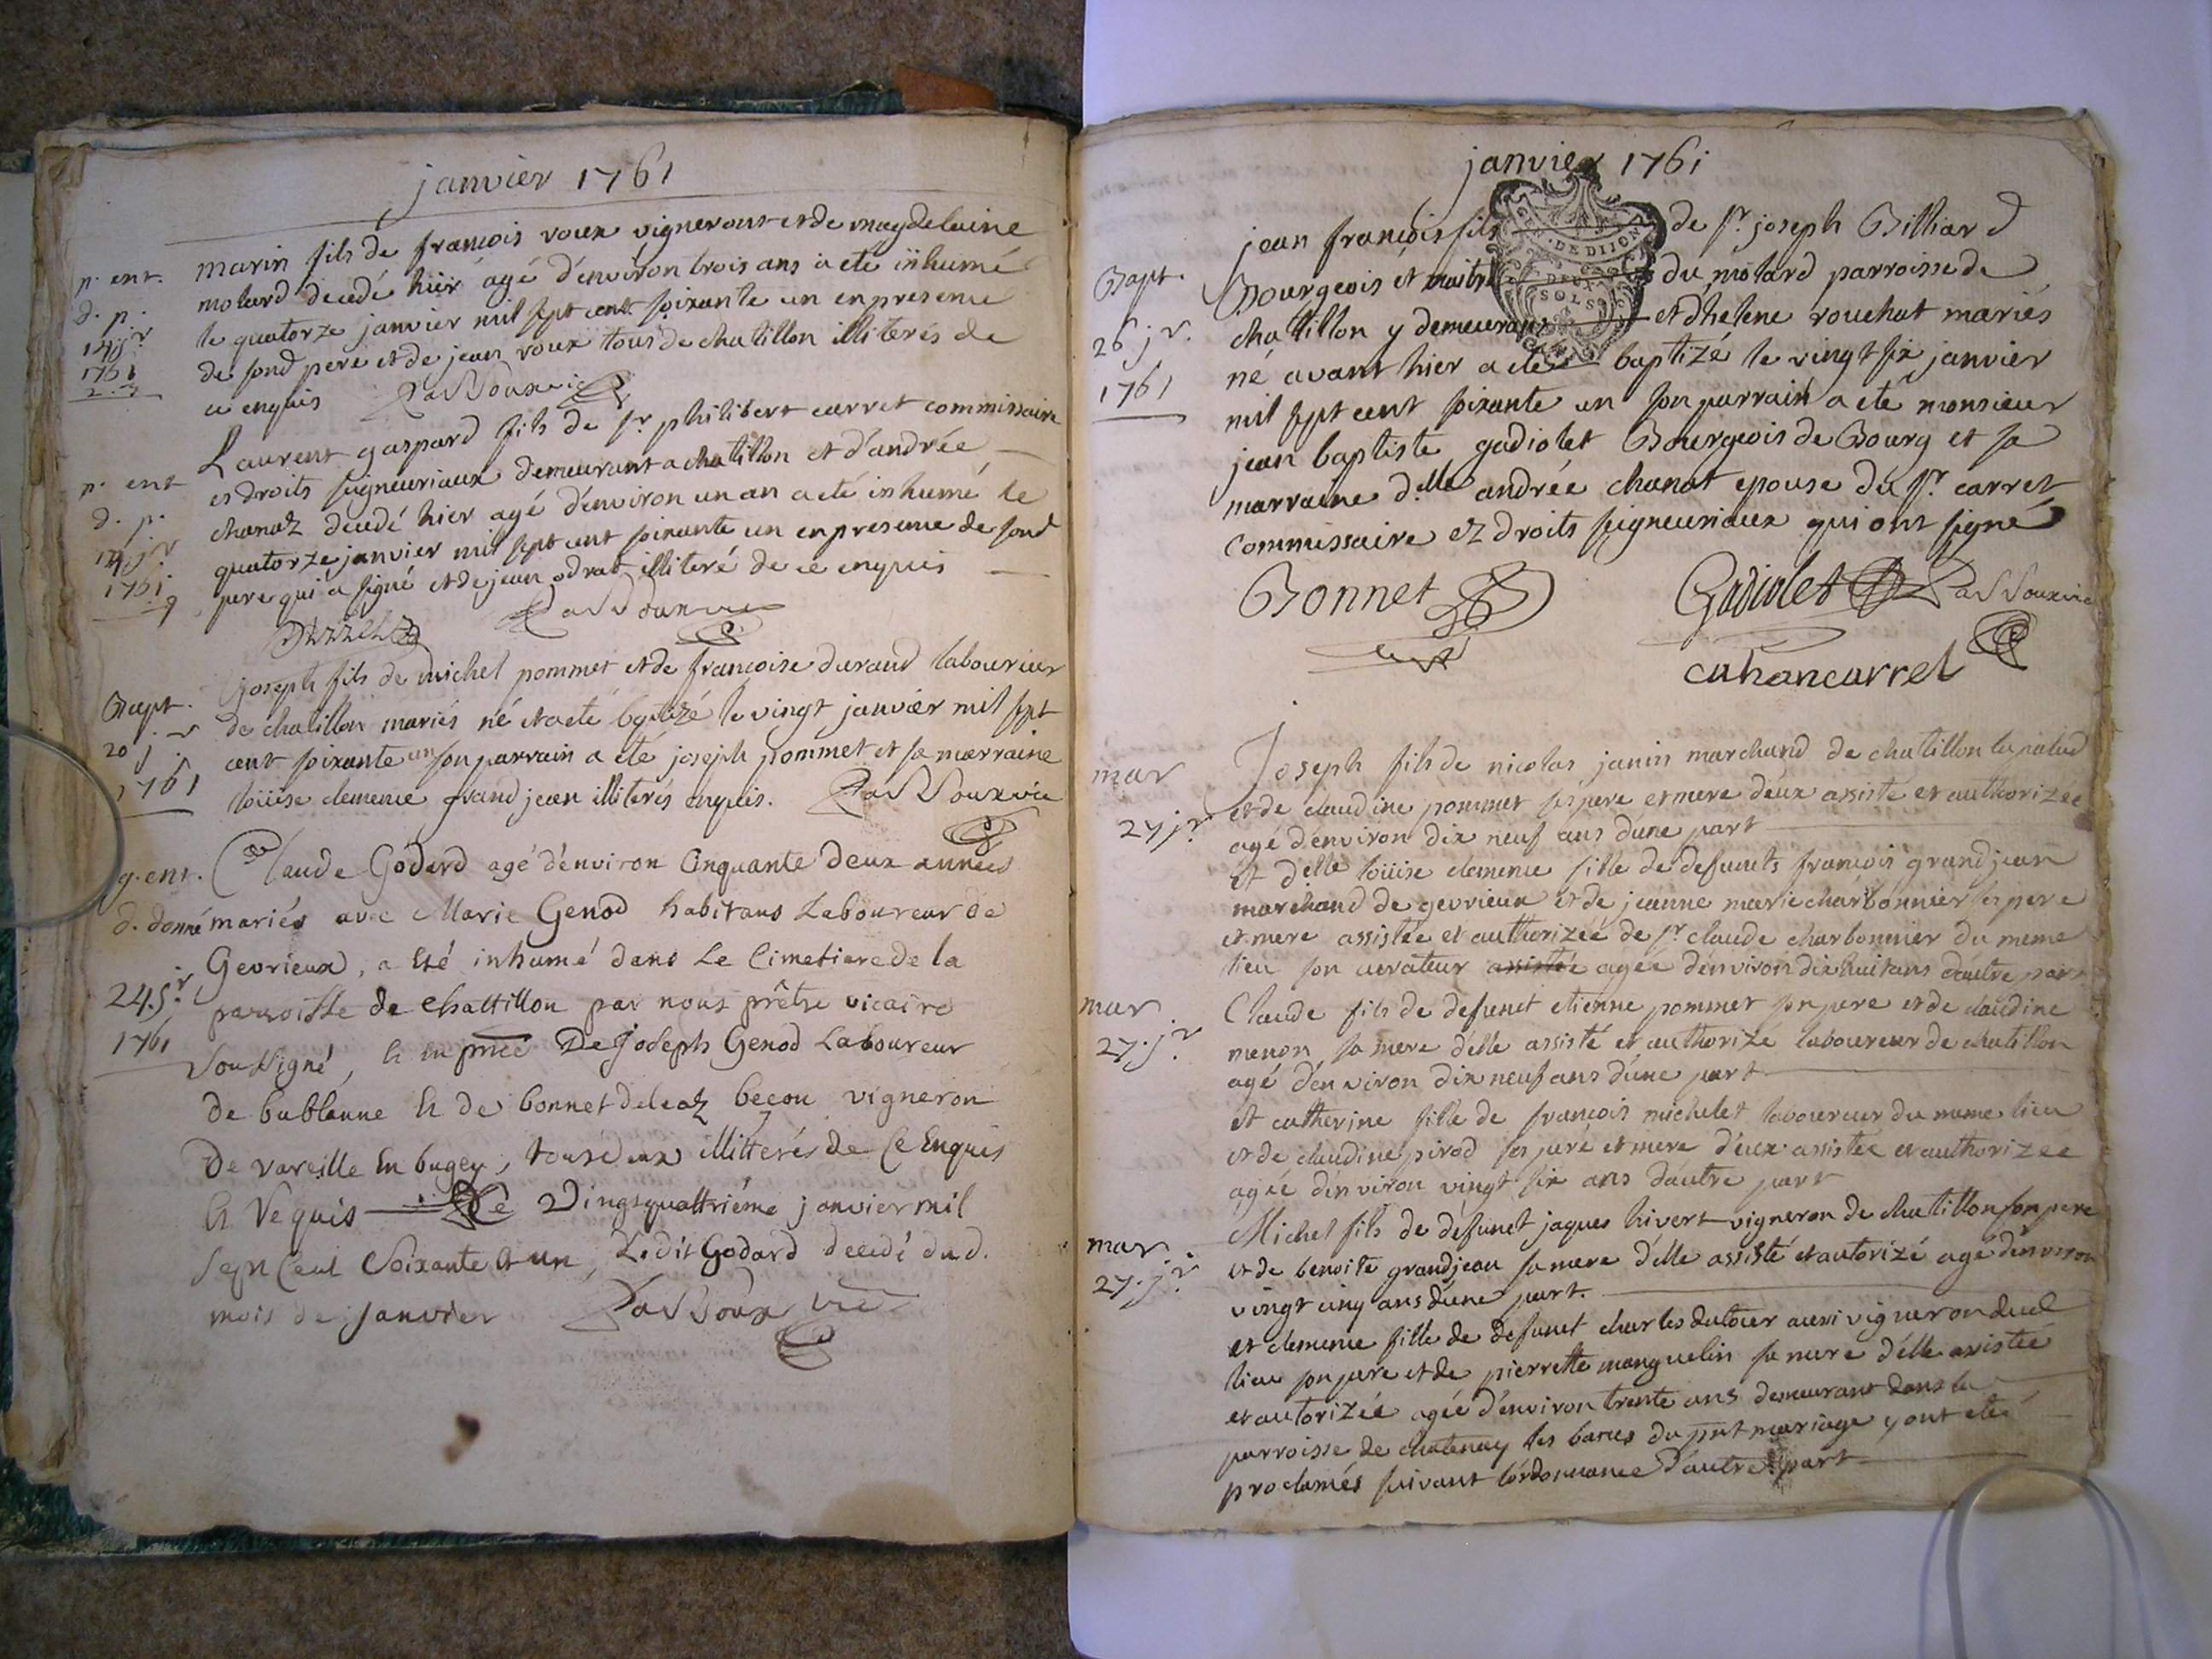 janvier 1761
p. ent.
d. p.
14 j.r
1761
marin fils de francois roux vigneront et de magdelaine
molard decedé hier agé d'environ trois ans a eté inhumé
le quatorze janvier mil sept cent soixante un en presence
de sond pere et de jean roux tous de chatillon illiterés de
ce enquis
p. ent
d. p.
14 j.r
1761
Laurent gaspard fils de sr philibert carret commissaire
es droits seigneuriaux demeurant a chatillon et d'andrée
chanaz decedé hier agé d'environ un an a eté inhumé le
quatorze janvier mil sept cent soixante un en presence de sond
pere qui a signé et de jean odrat illiteré de ce enquis
Bapt.
20 j.r
1761
joseph fils de michel pommet et de francoise durand laboureur
de chatillon mariés né et a eté bptizé le vingt janvier mil sept
cent soixante un son parrain a eté joseph pommet et sa marraine
loüise clemence grand jean illiterés enquis.
g. ent.
d. donné
24 j.r
1761
Claude Godard agé d'environ Cinquante deux années
mariés avec Marie Genod habitans Laboureur de
Gevrieux, a eté inhumé dans Le Cimetiere de la
parroisse de Chattillon par nous prêtre vicaire
Soussigné, et en pnce De Joseph Genod Laboureur
de bublanne et de bonnet deleaz becon vigneron
De vareille En bugey, tous deux illitterés de Ce Enquis
et Requis Ce Vingtquattriéme janvier mil
Sept Cent Soixante et un, Ledit Godard decedé du d.
mois de janvier
janvier 1761
Bapt.
26 j.r
1761
jean francois fils de sr joseph Billiard
Bourgeois et du molard parroisse de
chatillon y demeurant et d'helene rouchat mariés
né avant hier a eté baptizé le vingt six janvier
mil sept cent soixante un son parrain a eté monsieur
jean baptiste gadiolet Bourgeois de Bourg et sa
marraine d.elle andrée chanat epouse du sr carret
Commissaire ez droits seigneuriaux qui ont signé
GE. DE DIJON
DEUX
SOLS
Bonnet
Gadiolet
mar
27 j.r
Joseph fils de nicolas janin marchand de chatillon la palud
et de claudine pommet ses pere et mere d'eux assisté et authorizée
agé d'environ dix neuf ans d'une part
et d.elle loüise clemence fille de defuncts francois grandjean
marchand de gevrieux et de jeanne marie charbonnier ses pere
et mere assistée et authorizée de sr claude charbonnier du meme
lieu son curateur assistée agée d'environ dix huit ans d'autre part
mar
27. j.r
Claude fils de defunct etienne pommet son pere et de claudine
menon sa mere d'elle assisté et authorizé laboureur de chatillon
agé d'environ dix neuf ans d'une part
et catherine fille de francois michelet laboureur du meme lieu
et de claudine pirod ses peré et mere d'eux assistée et authorizée
agée d'environ vingt six ans d'autre part
mar
27. j.r
Michel fils de defunct jaques hivert vigneron de chatillon son pere
et de benoite grandjean sa mere d'elle assisté et autorizé agé d'environ
vingt cinq ans d'une part.
et clemence fille de defunct charles dutour aussi vigneron dud
lieu son pere et de pierrette manguelin sa mere d'elle assistée
et autorizée agée d'environ trente ans demeurant dans la
parroisse de chatenay les bancs du pnt mariage y ont eté
proclamés suivant l'ordonnance d'autre part